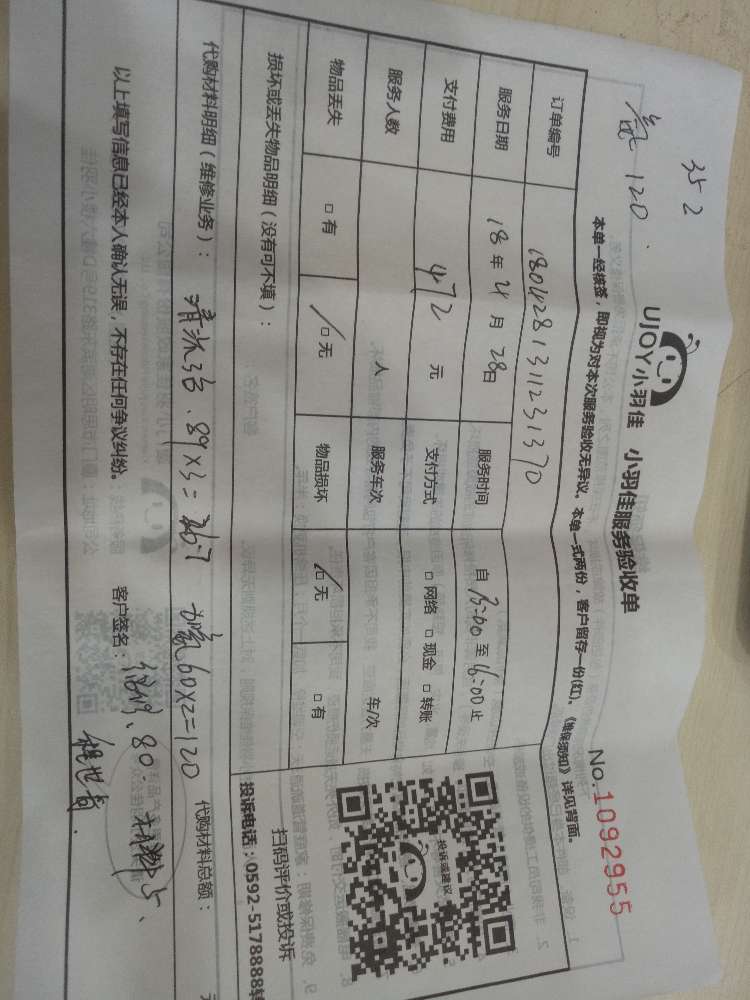 352
氟 120.
UJOY小羽佳 小羽佳服务验收单
No.1092955
本单一经核签，即视为对本次服务验收无异议。本单一式两份，客户留存一份(红)。《维保须知》详见背面。
订单编号 1804281311231370
服务日期 18年4月28日 服务时间 自13:00至16:00止
支付费用 472元 支付方式 □网络 □现金 □转账
服务人数 人 服务车次 车/次
物品丢失 □有 □无 物品损坏 □无 □有
损坏或丢失物品明细（没有可不填）：
扫码评价或投诉
投诉电话：0592-5178888转
投诉或建议
代购材料明细（维修业务）： 清洗 89×3=267 加氟60×2=120 代购材料总额：
80.
以上填写信息已经本人确认无误，不存在任何争议纠纷。 客户签名：